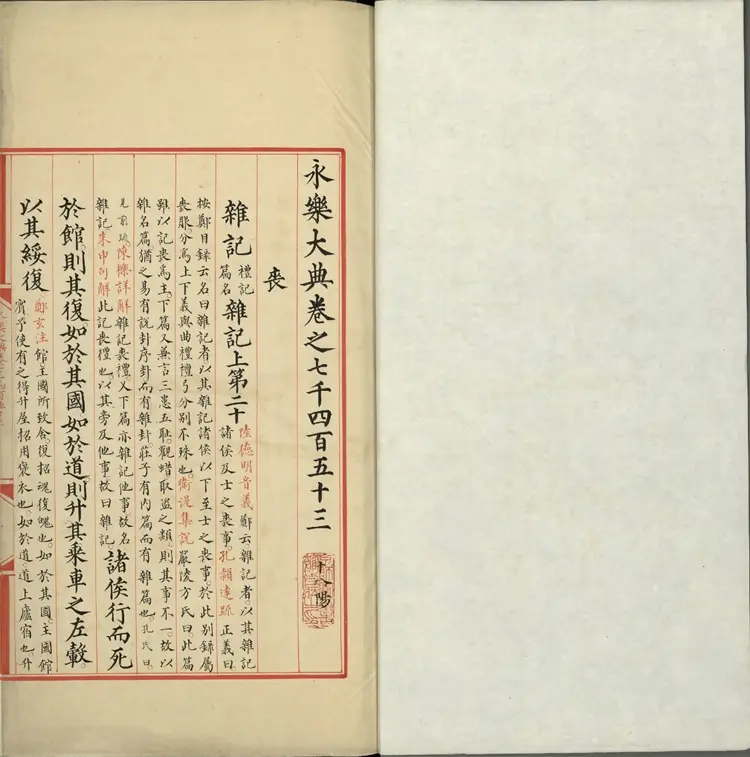 永樂大典卷之七千四百五十三 十八陽
喪
雜記 禮記篇名 雜記上第二十 陸德明音義鄭云雜記者以其雜記諸侯及士之喪事孔穎達疏正義曰
按鄭目錄云名曰雜記者以其雜記諸侯以下至士之喪事於此別錄屬
喪服分為上下義與曲禮檀弓分別不殊也衛湜集說嚴陵方氏曰此篇
雖以記喪為主下篇又兼言三患五耻觀蜡取盜之類則其事不一故以
雜名篇猶之易有說卦序卦而有雜卦莊子有內篇而有雜篇也孔氏曰
見前疏陳櫟詳解雜記喪禮又下篇亦雜記他事故名
雜記朱申句解此記喪禮也以其旁及他事故曰雜記 諸侯行而死
於館則其復如於其國如於道則升其乘車之左轂
以其綏復 鄭玄注館主國所致舍復招魂復魄也如於其國主國館
賓予使有之得升屋招用褒衣也如於道道上廬宿也升